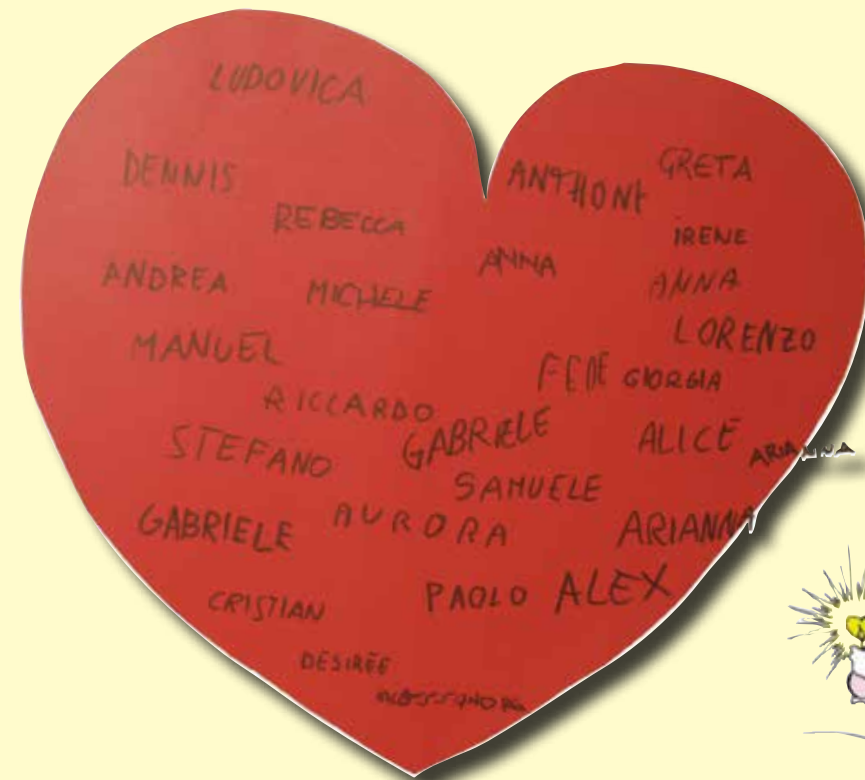 LUDOVICA
DENNIS
ANTHONY
GRETA
REBECCA
IRENE
ANNA
ANDREA
MICHELE
ANNA
MANUEL
LORENZO
FEDE
GIORGIA
RICCARDO
GABRIELE
ALICE
STEFANO
ARIANNA
SAMUELE
GABRIELE
AURORA
ARIANNA
CRISTIAN
PAOLO
ALEX
DESIRÈE
ALESSANDRA